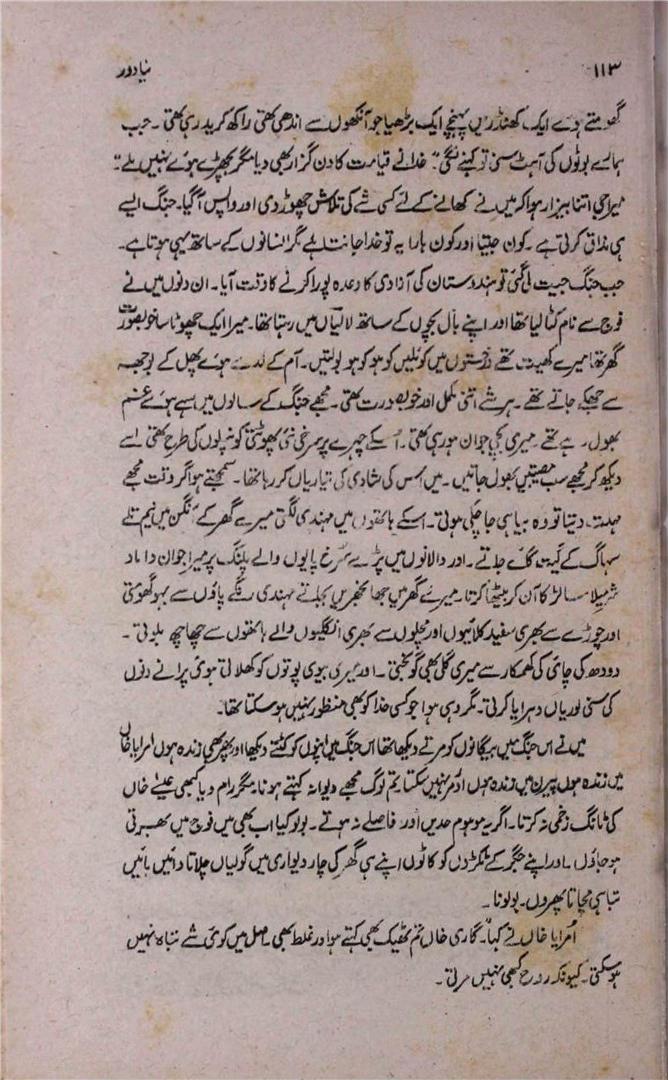 ۱۱۳ نیا دور
گھومتے ہوئے ایک کھنڈر میں پہنچے ایک بڑھیا جو آنکھوں سے اندھی تھی راکھ کرید رہی تھی ۔ جب
ہمارے بوٹوں کی آہٹ سنی تو کہنے لگی " خدا نے قیامت کا دن گزار بھی دیا مگر بچھڑے ہوئے نہیں ملے "
میرا جی اتنا بیزار ہوا کہ میں نے کھانے کے لئے کسی شے کی تلاش چھوڑ دی اور واپس آگیا ۔ جنگ ایسے
ہی مذاق کرتی ہے ۔ کون جیتا اور کون ہارا یہ تو خدا جانتا ہے مگر انسانوں کے ساتھ یہی ہوتا ہے ۔
جب جنگ جیت لی گئی تو ہندوستان کی آزادی کا وعدہ پورا کرنے کا وقت آیا ۔ ان دنوں میں نے
فوج سے نام کٹا لیا تھا اور اپنے بال بچوں کے ساتھ لاٹیاں میں رہتا تھا ۔ میرا ایک چھوٹا سا خوبصورت
گھر تھا میرے کھیت تھے درختوں میں کوئلیں کوہو کوہو بولتیں ۔ آم کے لدے ہوئے پھل کے بوجھ
سے جھکے جاتے تھے ۔ ہر شے اتنی مکمل اور خوبصورت تھی ۔ مجھے جنگ کے سالوں میں سہے ہوئے غم
بھول رہے تھے میری بچی جوان ہو رہی تھی ۔ اسکے چہرے پر سرخی نئی پھوٹتی کونپلوں کی طرح تھی اسے
دیکھ کر مجھے سب مصیبتیں بھول جاتیں ۔ میں اس کی شادی کی تیاریاں کر رہا تھا ۔ سمجھتے ہو اگر وقت مجھے
مہلت دیتا تو وہ بیاہی جا چکی ہوتی ۔ اسکے ہاتھوں میں مہندی لگتی میرے گھر کے آنگن میں نیم تلے
سہاگ کے گیت گائے جاتے ۔ اور دالانوں میں پڑے سرخ پایوں والے پلنگ پر میرا جوان داماد
شرمیلا سا لڑکا آن کر بیٹھا کرتا ۔ میرے گھر میں جھانجھریں بجاتے مہندی رنگے پاؤں سے بہو گھومتی
اور چوڑے سے بھری سفید کلائیوں اور چھلوں سے بھری انگلیوں والے ہاتھوں سے چھاچھ بلوتی ۔
دودھ کی چاٹی کی گھمکار سے میری گلی بھی گونجتی ۔ اور میری بیوی پوتوں کو کھلاتی ہوئی پرانے دنوں
کی سنی لوریاں دہرایا کرتی ۔ مگر وہی ہوا جو کسی خدا کو بھی منظور نہیں ہو سکتا تھا ۔
میں نے اس جنگ میں بیگانوں کو مرتے دیکھا تھا اس جنگ میں اپنوں کو کٹتے دیکھا اور پھر بھی زندہ ہوں امرایا خاں
میں زندہ ہوں پیرن میں زندہ ہوں اور مر نہیں سکتا تم لوگ مجھے دیوانہ کہتے ہو نا مگر رام دیا کبھی عیسے خاں
کی ٹانگ زخمی نہ کرتا ۔ اگر یہ موہوم حدیں اور فاصلے نہ ہوتے ۔ بولو کیا اب بھی میں فوج میں بھرتی
ہو جاؤں ۔ اور اپنے جگر کے ٹکڑوں کو کاٹوں اپنے ہی گھر کی چار دیواری میں گولیاں چلاتا دائیں بائیں
تباہی مچاتا پھروں ۔ بولو نا ۔
امرایا خاں نے کہا ۔ گاری خاں تم ٹھیک بھی کہتے ہو اور غلط بھی ۔ اصل میں کوئی شے تباہ نہیں
ہو سکتی ۔ کیونکہ روح کبھی نہیں مرتی ۔